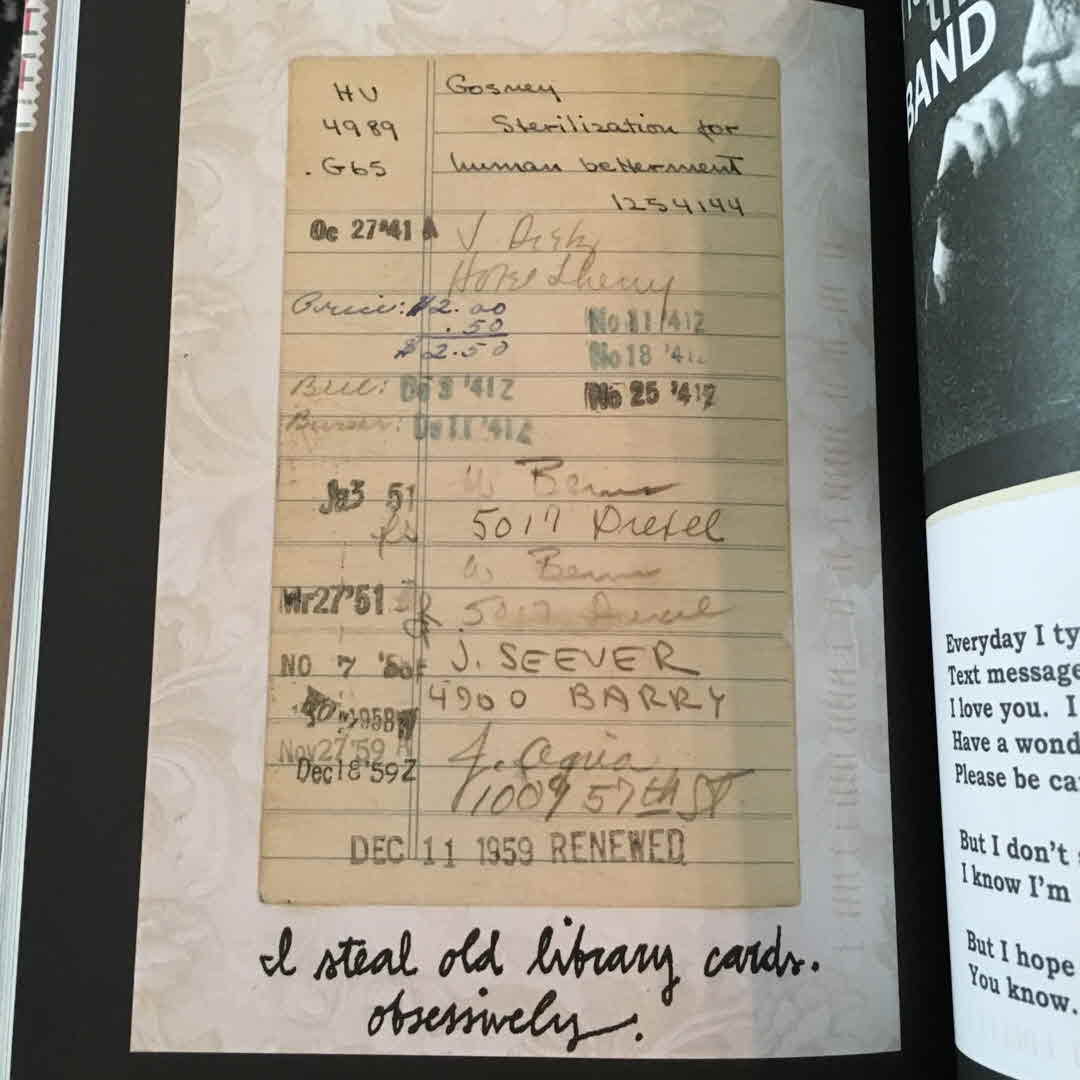 HU
4989
.G65
Gosney
Sterilization for
human betterment
1254144
Oc 27 '41 A
J
Hotel Sherry
Price: $2.00
.50
$2.50
No 11 '41Z
No 18 '41Z
No 25 '41Z
De 3 '41Z
De 11 '41Z
Ja 3 51
5017 Drexel
Mr 27 '51
5017 Drexel
NO 7
J. SEEVER
4900 BARRY
1958
Nov 27 '59 A
Dec 18 '59 Z
J.
1009 57th ST
DEC 11 1959 RENEWED
I steal old library cards.
obsessively.
BAND
Everyday I ty
Text message
I love you. I
Have a wond
Please be ca
But I don't
I know I'm
But I hope
You know.